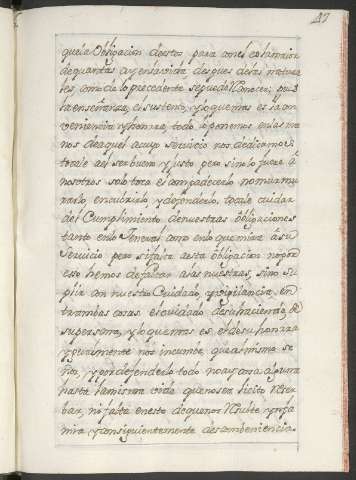 47
que la Obligacion de estos para con el es la maior
de quantas ay en la vida, despues de las natura
les, como de lo precedente se puede Conocer; pues
la enseñanza, el sustento, y lo que mas es la con
veniencia y honrra, todo lo ponemos en las ma
nos de aquel a cuyo servicio nos dedicamos;
tocale a el ser bueno y justo pero si no lo fuere a
nosotros solo toca el compadecerlo no murmu
rarlo encubrirlo y defenderlo, tocale cuidar
del Cumplimiento de nuestras obligaciones
tanto en lo General como en lo que mira a su
Servicio pero si falta a esta obligacion no por
esso hemos de faltar a las nuestras, sino su
plir con nuestro Cuidado, y vigilancia, en
trambas cosas. el cuidado de su hacienda, de
su persona, y lo que mas es, el de su honrra
ygualmente nos incumbe, que al mismo se
ñor, y por defenderlo todo no ay cosa alguna
hasta la misma vida que no sea licito
por, ni falta en esto de que no Resulte ynfa
mia, y consiguientemente desconbeniencia.